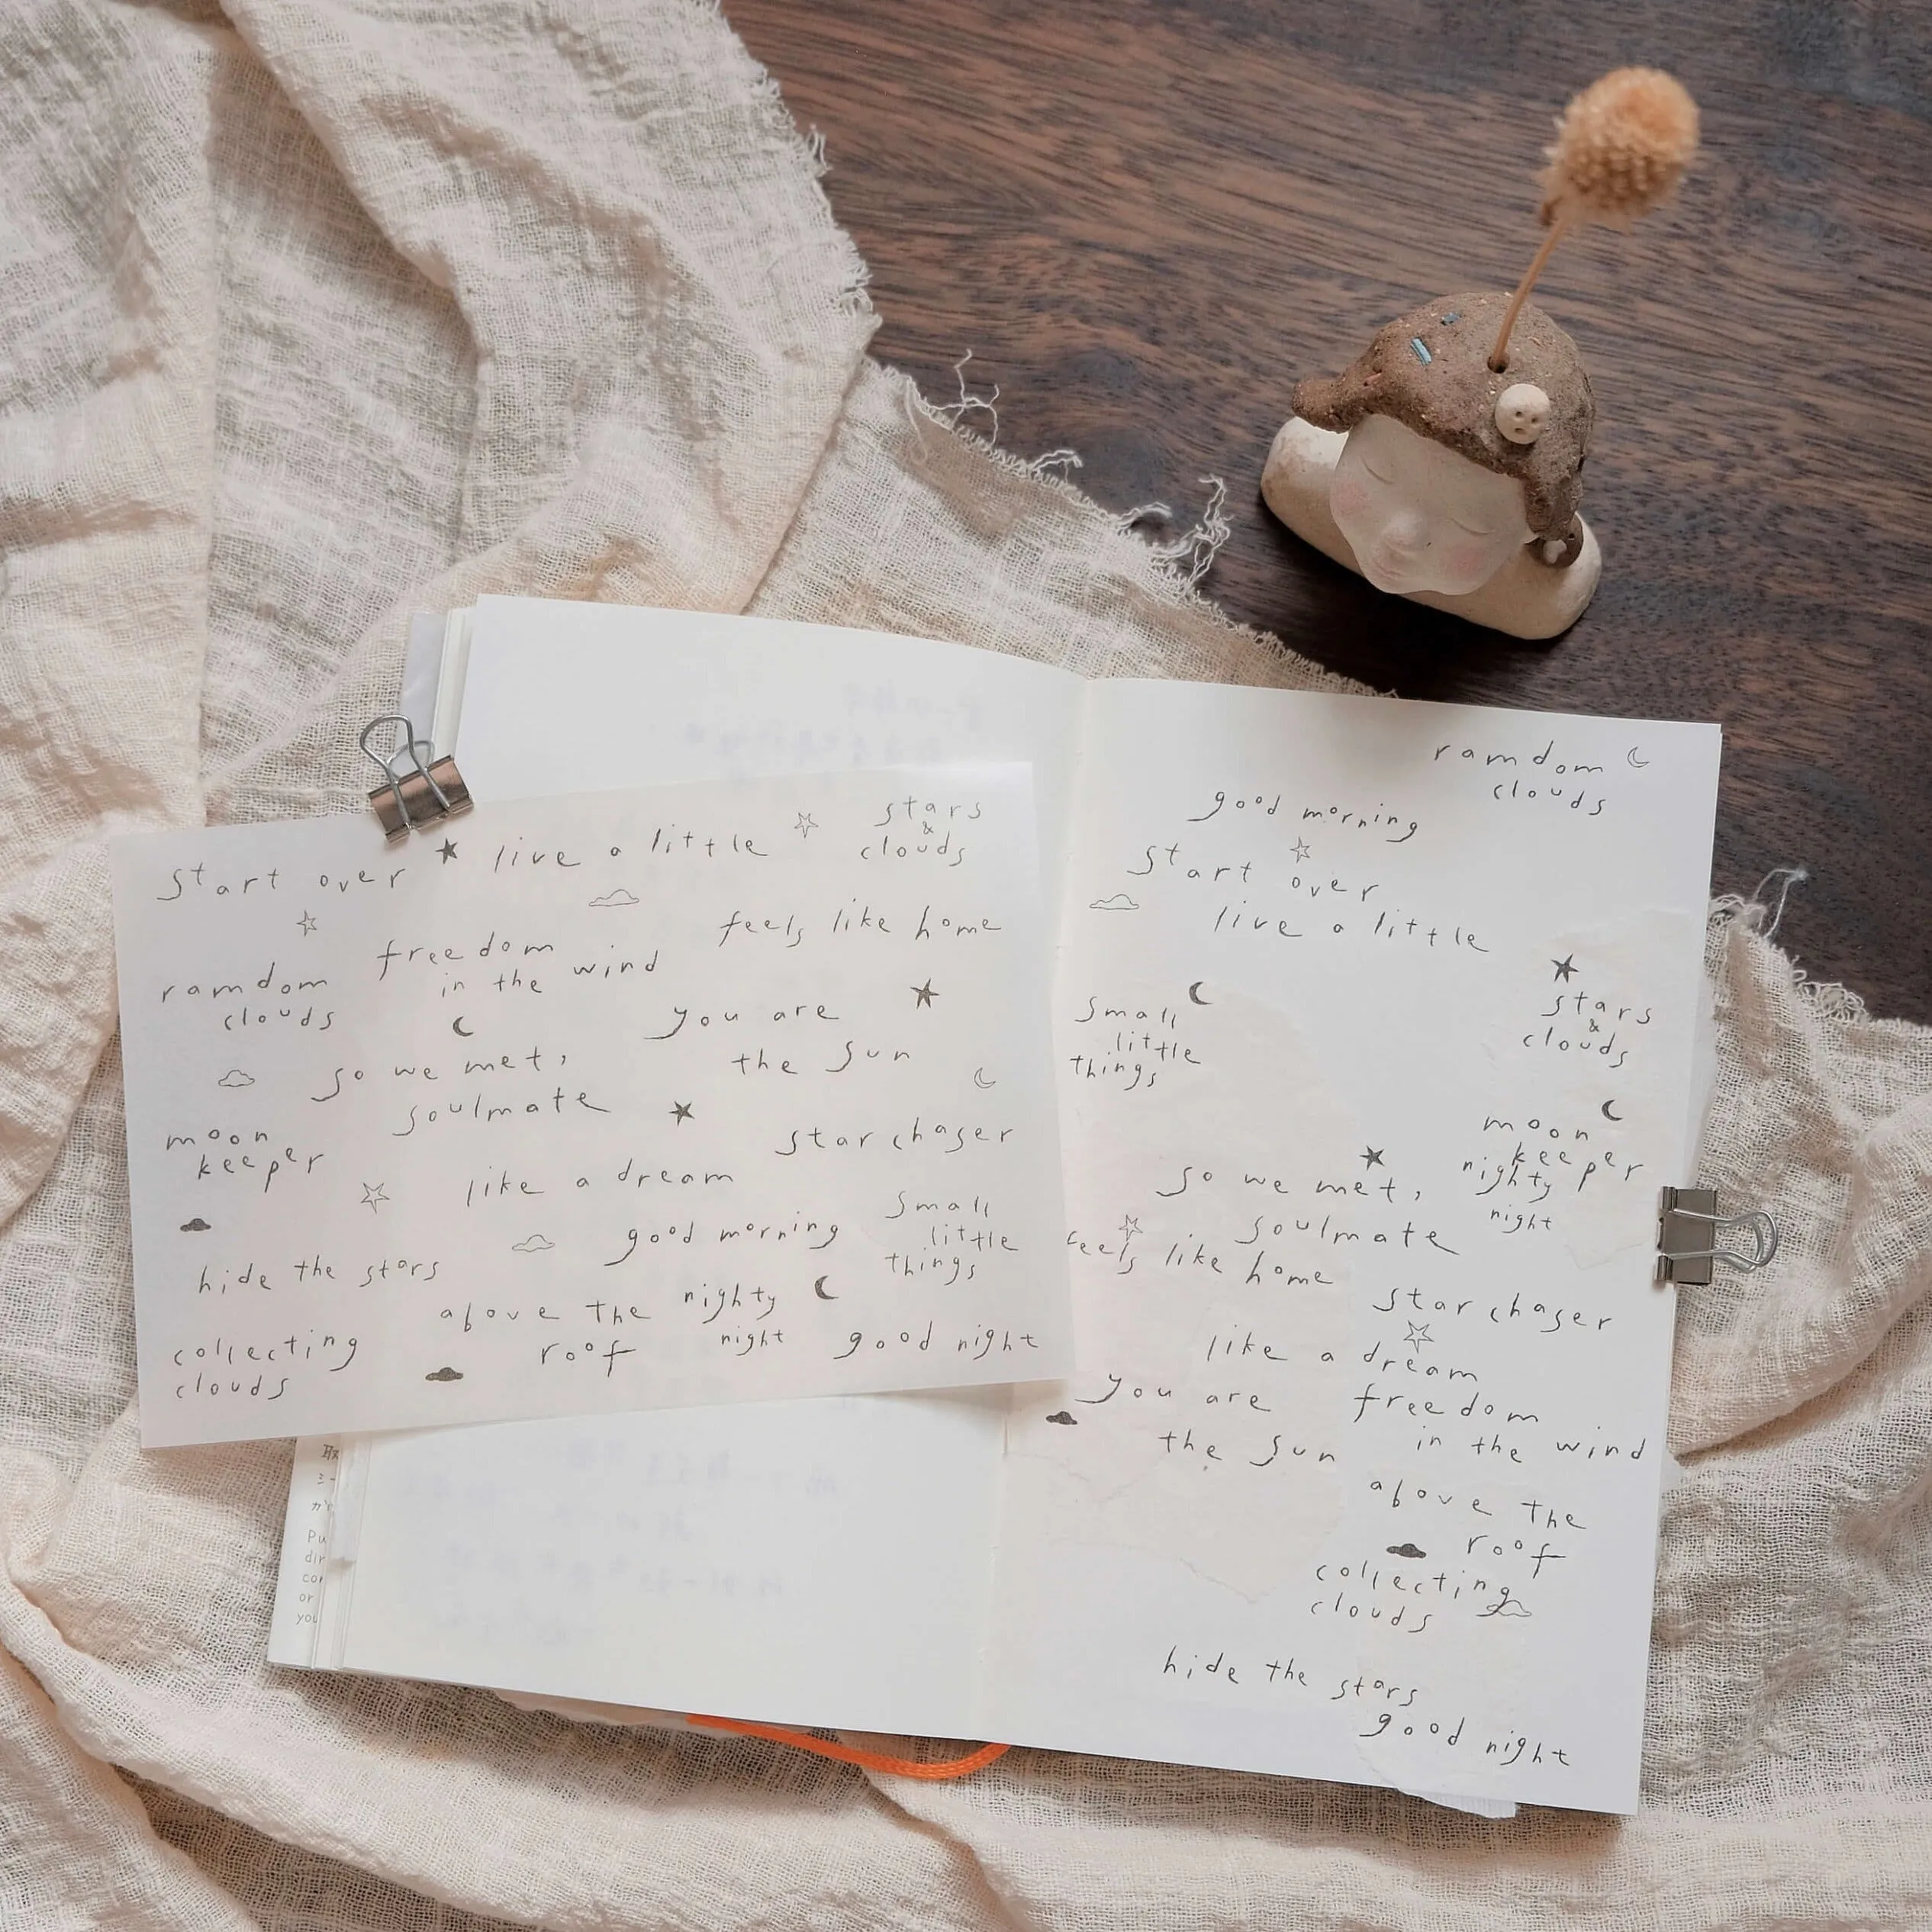 start over
live a little
stars
&
clouds
freedom
in the wind
feels like home
ramdom
clouds
you are
the sun
so we met,
soulmate
moon
keeper
star chaser
like a dream
good morning
small
little
things
hide the stars
above the
roof
nighty
night
good night
collecting
clouds
取
Pu
dir
or
you
ramdom
clouds
good morning
start over
live a little
stars
&
clouds
small
little
things
moon
keeper
nighty
night
so we met,
soulmate
feels like home
star chaser
like a dream
you are
the sun
freedom
in the wind
above the
roof
collecting
clouds
hide the stars
good night